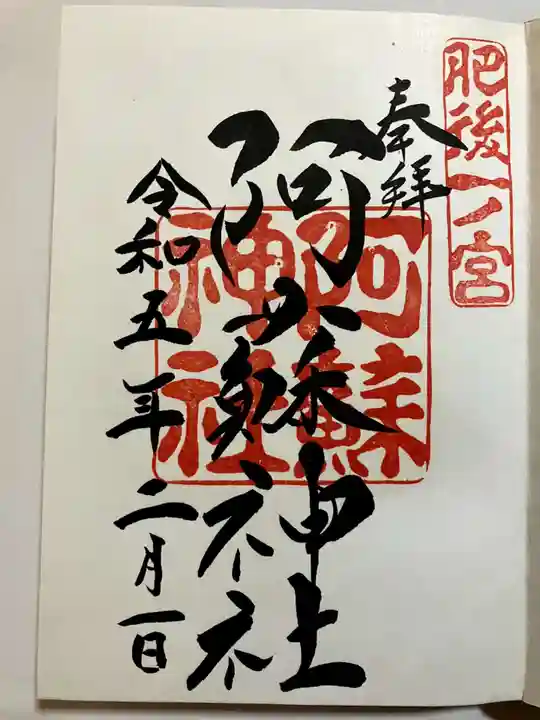 肥後一ノ宮
奉拝
阿蘇神社
阿蘇
神社
令和五年二月一日